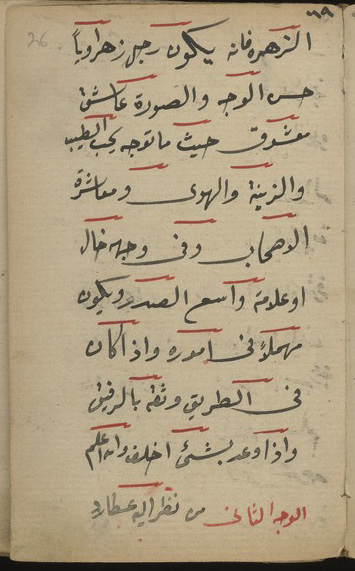 ٦٩
26
الزهره فانه يكون رجل زهراوياً
حسن الوجه والصورة عاشق
معشوق حيث ما توجه يحب الطيب
والزينة والهوى ومعاشرة
الاصحاب وفى وجهه خال
او علامة واسع الصدر ويكون
مهملاً فى اموره واذا كان
فى الطريق وثقه بالرفيق
واذا وعد بشئ اخلف والله اعلم
الوجه الثانى من نظر اليه عطارد